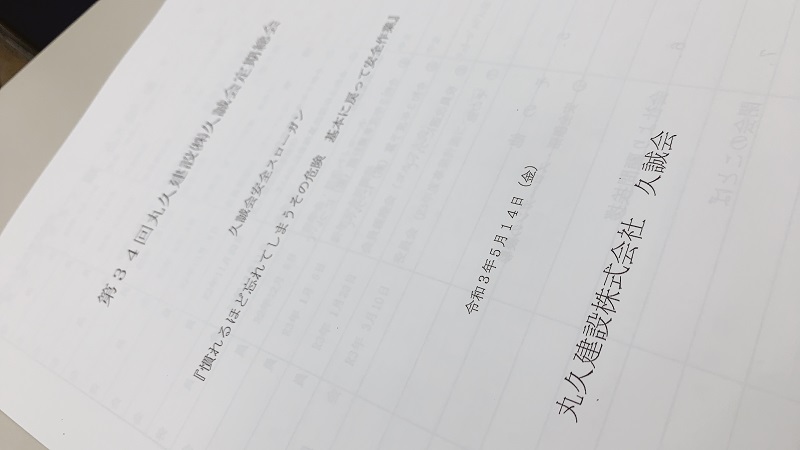 第３４回丸久建設㈱久誠会定期総会
久誠会安全スローガン
『慣れるほど忘れてしまうその危険　基本に戻って安全作業』
令和３年５月１４日（金）
丸久建設株式会社　久誠会